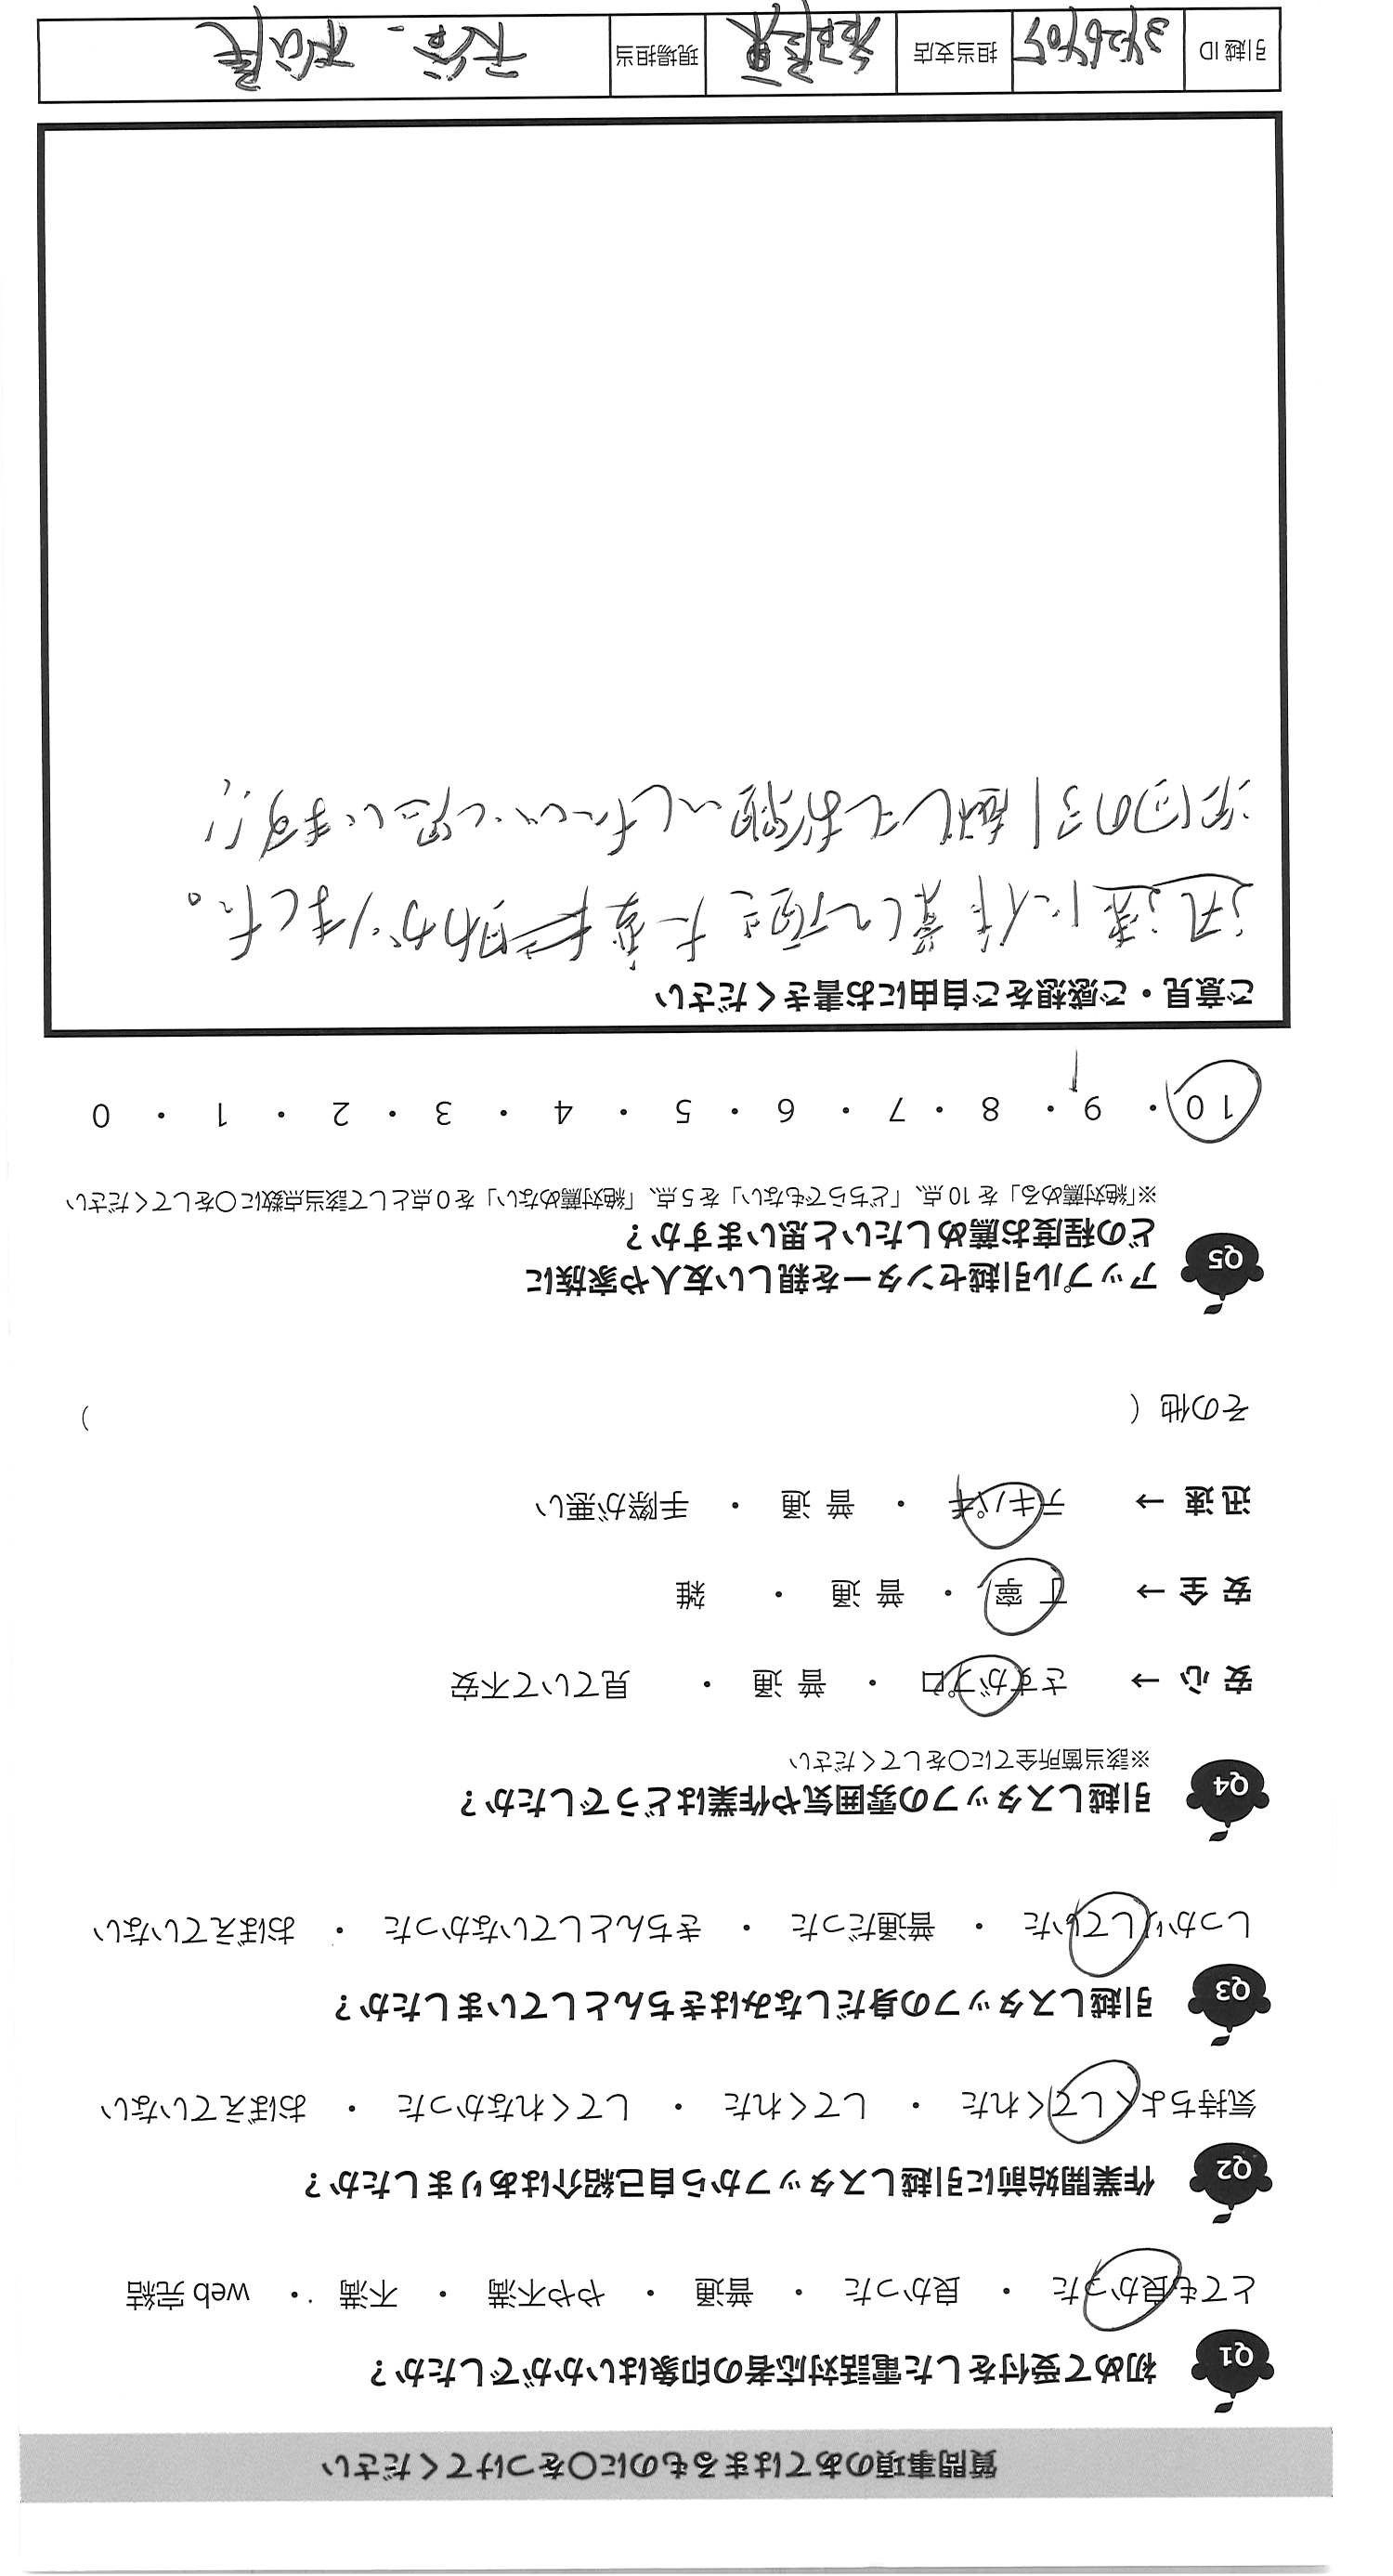 質問事項のあてはまるものに○をつけてください
Q1 初めて受付をした電話対応者の印象はいかがでしたか？
とても良かった ・ 良かった ・ 普通 ・ やや不満 ・ 不満 ・ web 完結
Q2 作業開始前に引越しスタッフから自己紹介はありましたか？
気持ちよくしてくれた ・ してくれた ・ してくれなかった ・ おぼえていない
Q3 引越しスタッフの身だしなみはきちんとしていましたか？
しっかりしていた ・ 普通だった ・ きちんとしていなかった ・ おぼえていない
Q4 引越しスタッフの雰囲気や作業はどうでしたか？
※該当箇所全てに○をしてください
安 心 → さすがプロ ・ 普 通 ・ 見ていて不安
安 全 → 丁 寧 ・ 普 通 ・ 雑
迅 速 → テキパキ ・ 普 通 ・ 手際が悪い
その他（ ）
Q5 アップル引越センターを親しい友人や家族に
どの程度お薦めしたいと思いますか？
※「絶対薦める」を 10 点、「どちらでもない」を 5 点、「絶対薦めない」を 0 点として該当点数に○をしてください
10 ・ 9 ・ 8 ・ 7 ・ 6 ・ 5 ・ 4 ・ 3 ・ 2 ・ 1 ・ 0
ご意見・ご感想をご自由にお書きください
迅速に作業して頂き大変助かりました。
次回の引越しもお願いしたいと思います!!
引越 ID 担当支店 現場担当 大谷・松尾